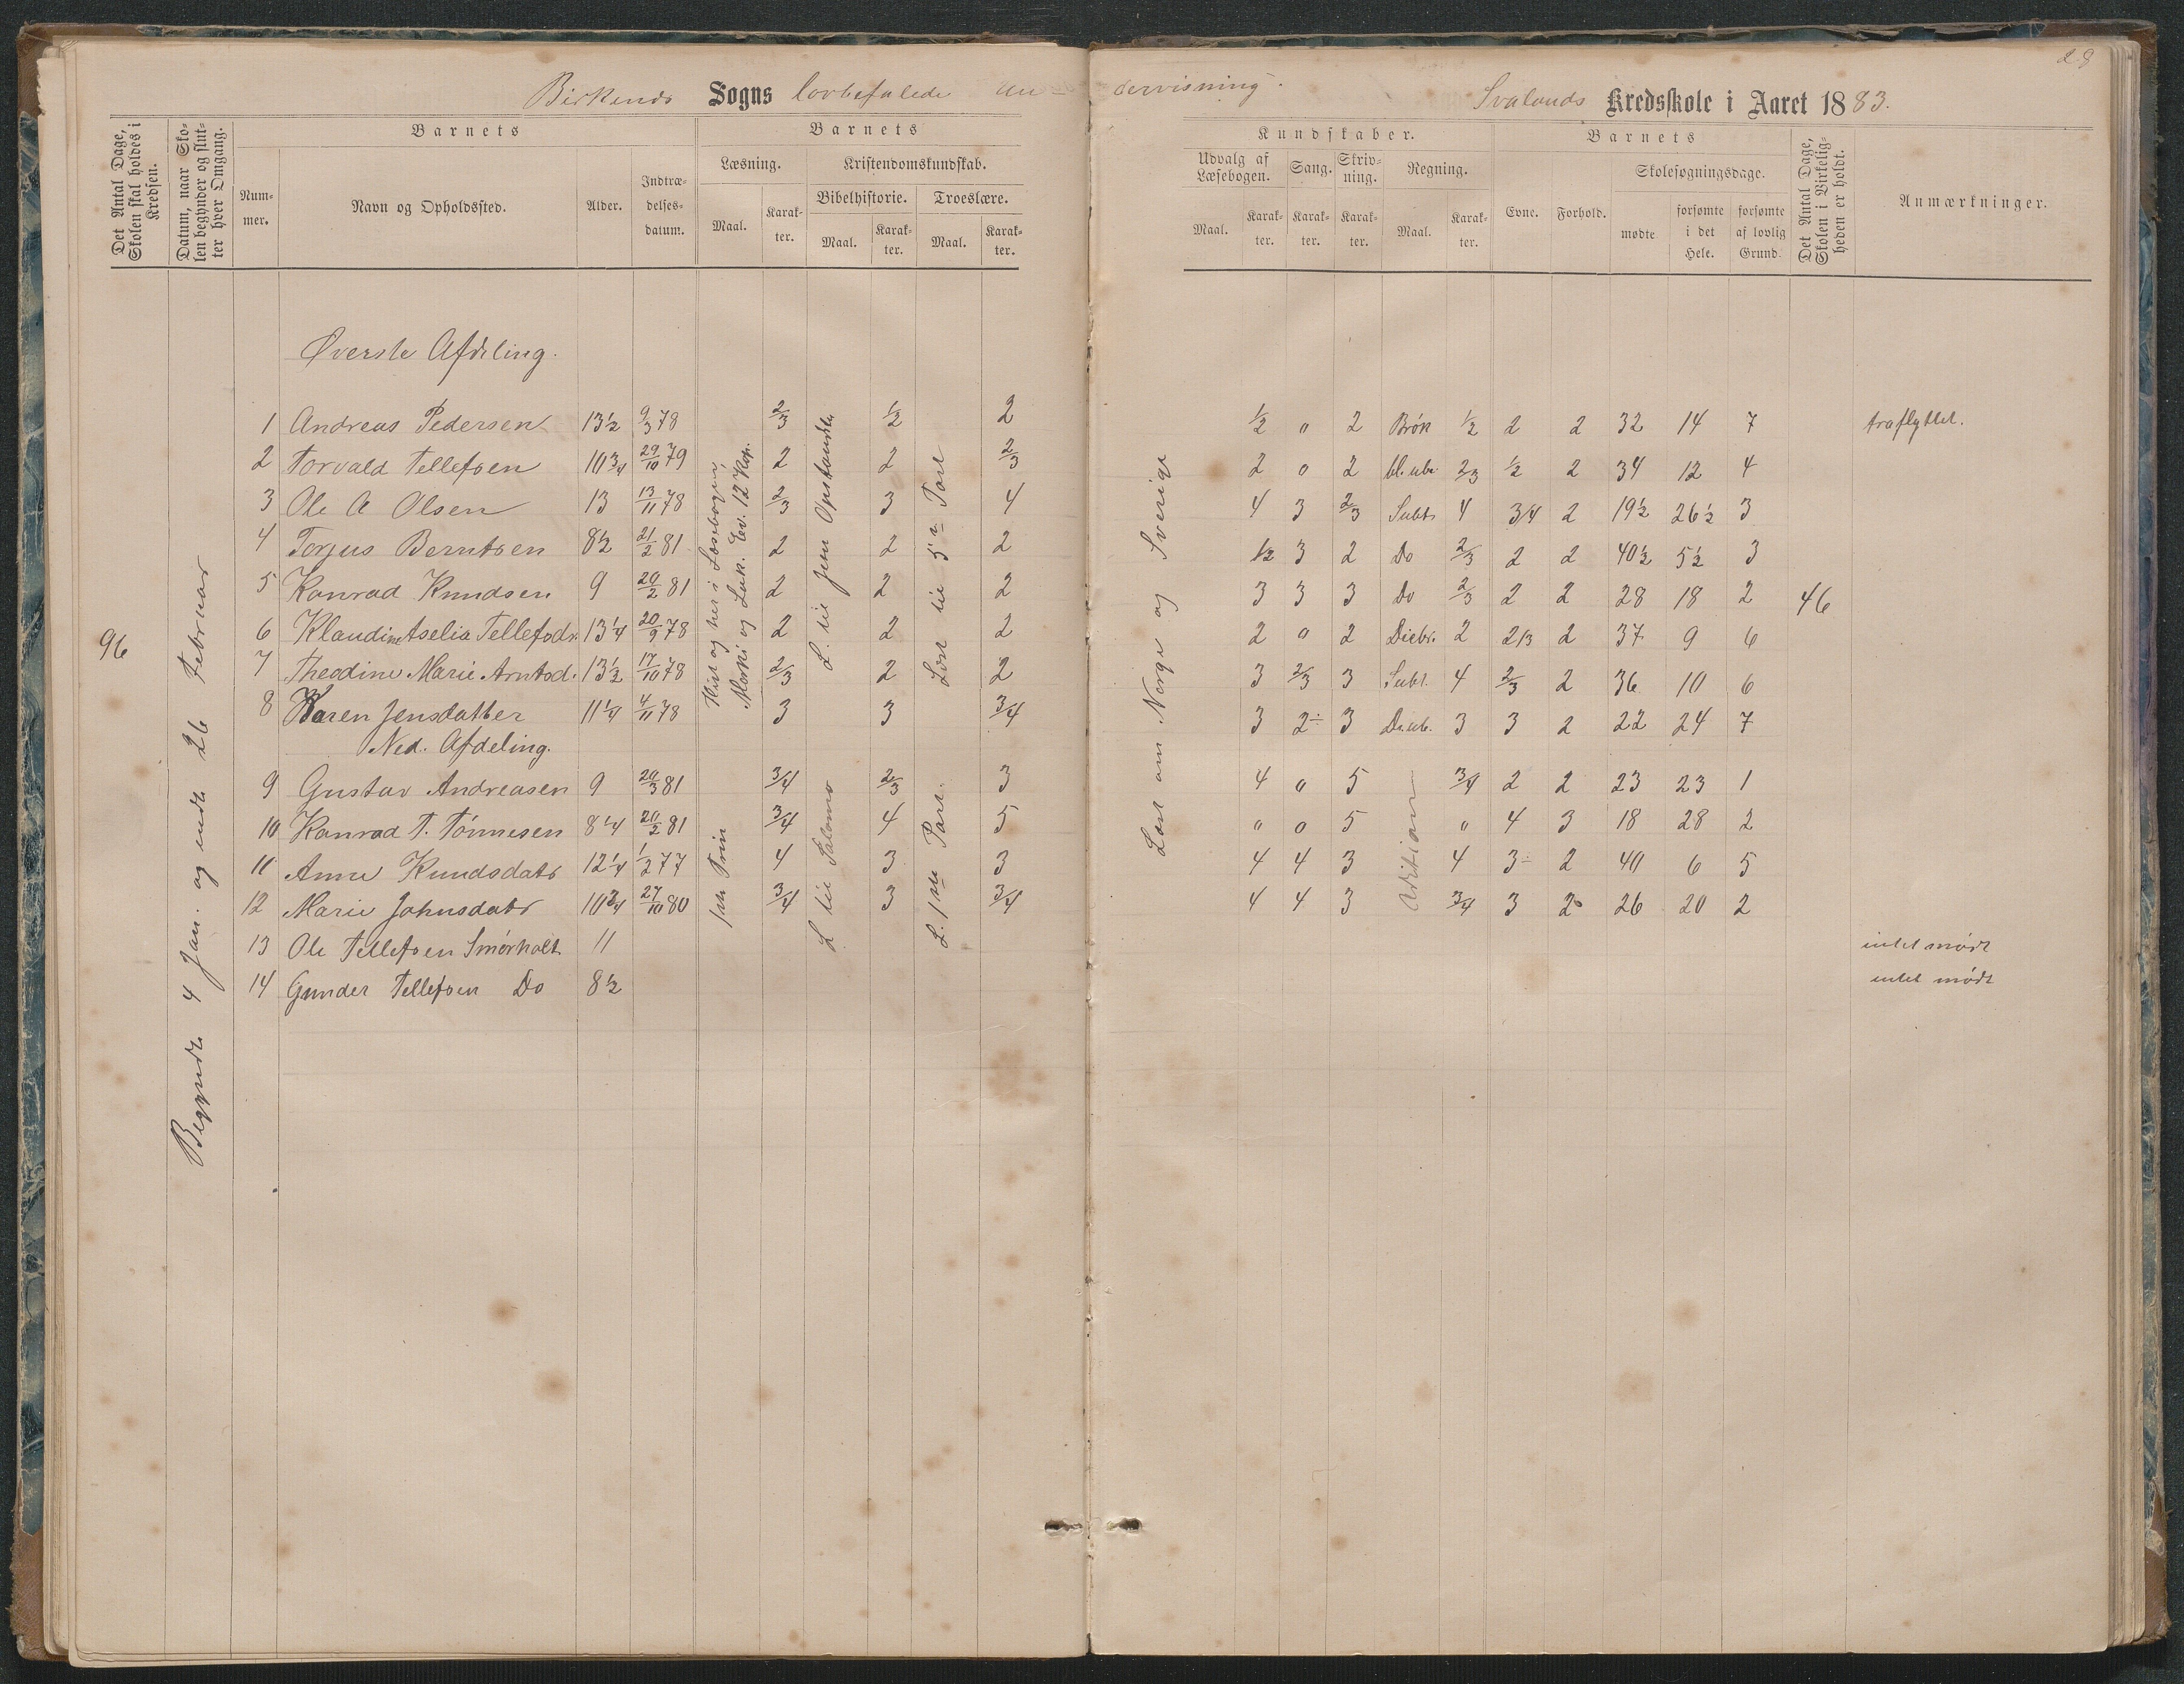 28
Birkends Sogns lovbefalede un dervisning.
Svalands Kredsskole i Aaret 1883.
Det Antal Dage, Skolen skal holdes i Kredsen.
Datum, naar Skolen begynder og slutter hver Omgang.
Barnets
Nummer.
Navn og Opholdssted.
Alder.
Indtrædelsesdatum.
Barnets
Læsning.
Maal.
Karakter.
Kristendomskundskab.
Bibelhistorie.
Maal.
Karakter.
Troeslære.
Maal.
Karakter.
Kundskaber.
Udvalg af Læsebogen.
Maal.
Karakter.
Sang.
Karakter.
Skrivning.
Karakter.
Regning.
Maal.
Karakter.
Barnets
Evne.
Forhold.
Skolesøgningsdage.
mødte
forsømte i det Hele.
forsømte af lovlig Grund.
Det Antal Dage, Skolen i Virkeligheden er holdt.
Anmærkninger.
96
Begyndt 4 Jan. og endt 26 Februar
Øverste Afdeling.
1 Andreas Pedersen 13½ 9/3 78 2/3 ½ 2 ½ " 2 Brök ½ 2 2 32 14 7 fraflyttet.
2 Torvald Tellefsen 10¾ 29/10 79 2 2 2/3 2 o 2 2/3 ½ 2 34 12 4
3 Ole A Olsen 13 13/11 78 2/3 3 4 4 3 2/3 Subt. 4 3/4 2 19½ 26½ 3
4 Torjus Berntsen 8½ 21/2 81 2 2 2 1/2 3 2 Do 2/3 2 2 40½ 5½ 3
5 Konrad Knudsen 9 20/2 81 2 2 2 3 3 3 Do 2/3 2 2 28 18 2 46
6 Klaudine Aselia Tellefsdr. 13¼ 20/9 78 2 2 2 2 o 2 2 2/3 2 37 9 6
7 Theodine Marie Arntsd. 13½ 17/10 78 2/3 2 2 3 2/3 3 Subt. 4 2/3 2 36 10 6
8 Karen Jensdatter 11¼ 4/11 78 3 3 3/4 3 2÷ 3 3 3 2 22 24 7
Ned. Afdeling.
9 Gustav Andreasen 9 20/3 81 3/4 2/3 3 4 o 5 3/4 2 2 23 23 1
10 Konrad T. Tönnesen 8¼ 20/2 81 3/4 4 5 " o 5 " 4 3 18 28 2
11 Anne Knudsdatr 12¼ 1/2 77 4 3 3 4 4 3 4 3÷ 2 40 6 5
12 Marie Johnsdatr 10¾ 27/10 80 3/4 3 3/4 4 4 3 3/4 3 2 26 20 2
13 Ole Tellefsen Smörholt 11 intet mödt
14 Gunder Tellefsen Do 8½ intet mödt
Hist og her i Læsebogen,
og Luk. Ev. 12 Kap.
L. til Jesu Opstandelse
Læst til 5te Part
L. til Salomo
L. 1ste Part.
Læst om Norge og Sverige
Adition